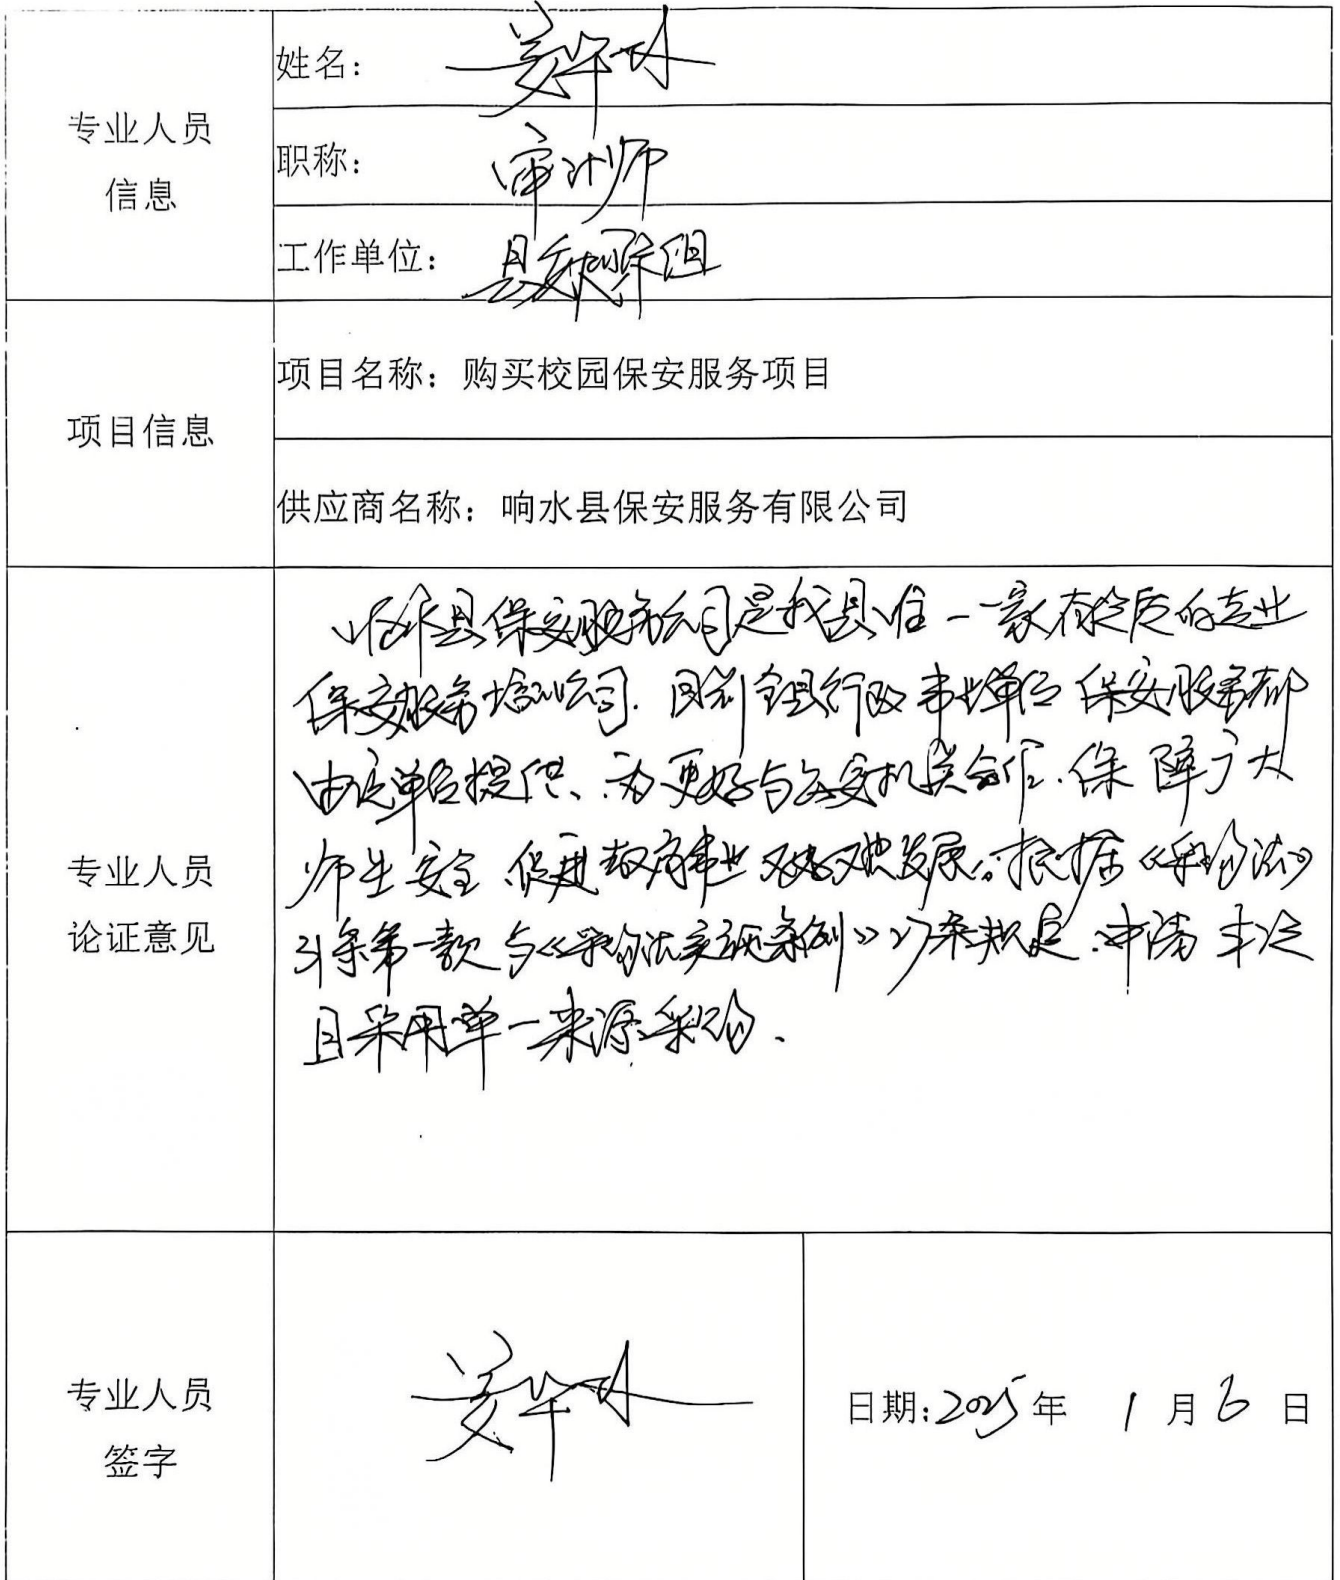 专业人员
信息
姓名：姜华
职称：审计师
工作单位：县委
项目信息
项目名称：购买校园保安服务项目
供应商名称：响水县保安服务有限公司
专业人员
论证意见
响水县保安服务公司是我县唯一一家有资质的专业
保安服务培训公司．目前全县行政事业单位保安服务都
由该单位提供、为更好与公安机关合作．保障广大
师生安全促进教育事业又好又快发展。根据《采购法》
31条第一款与《采购法实施条例》27条规定．申请
且采用单一来源采购．
专业人员
签字
姜华
日期:2025年 1月6日